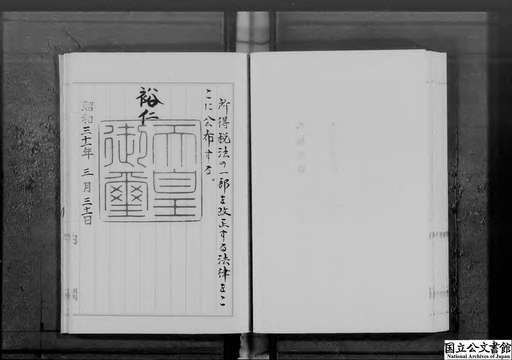 所得税法の一部を改正する法律をこ
こに公布する。
裕仁
天皇
御璽
昭和三十二年三月三十一日
国立公文書館
National Archives of Japan